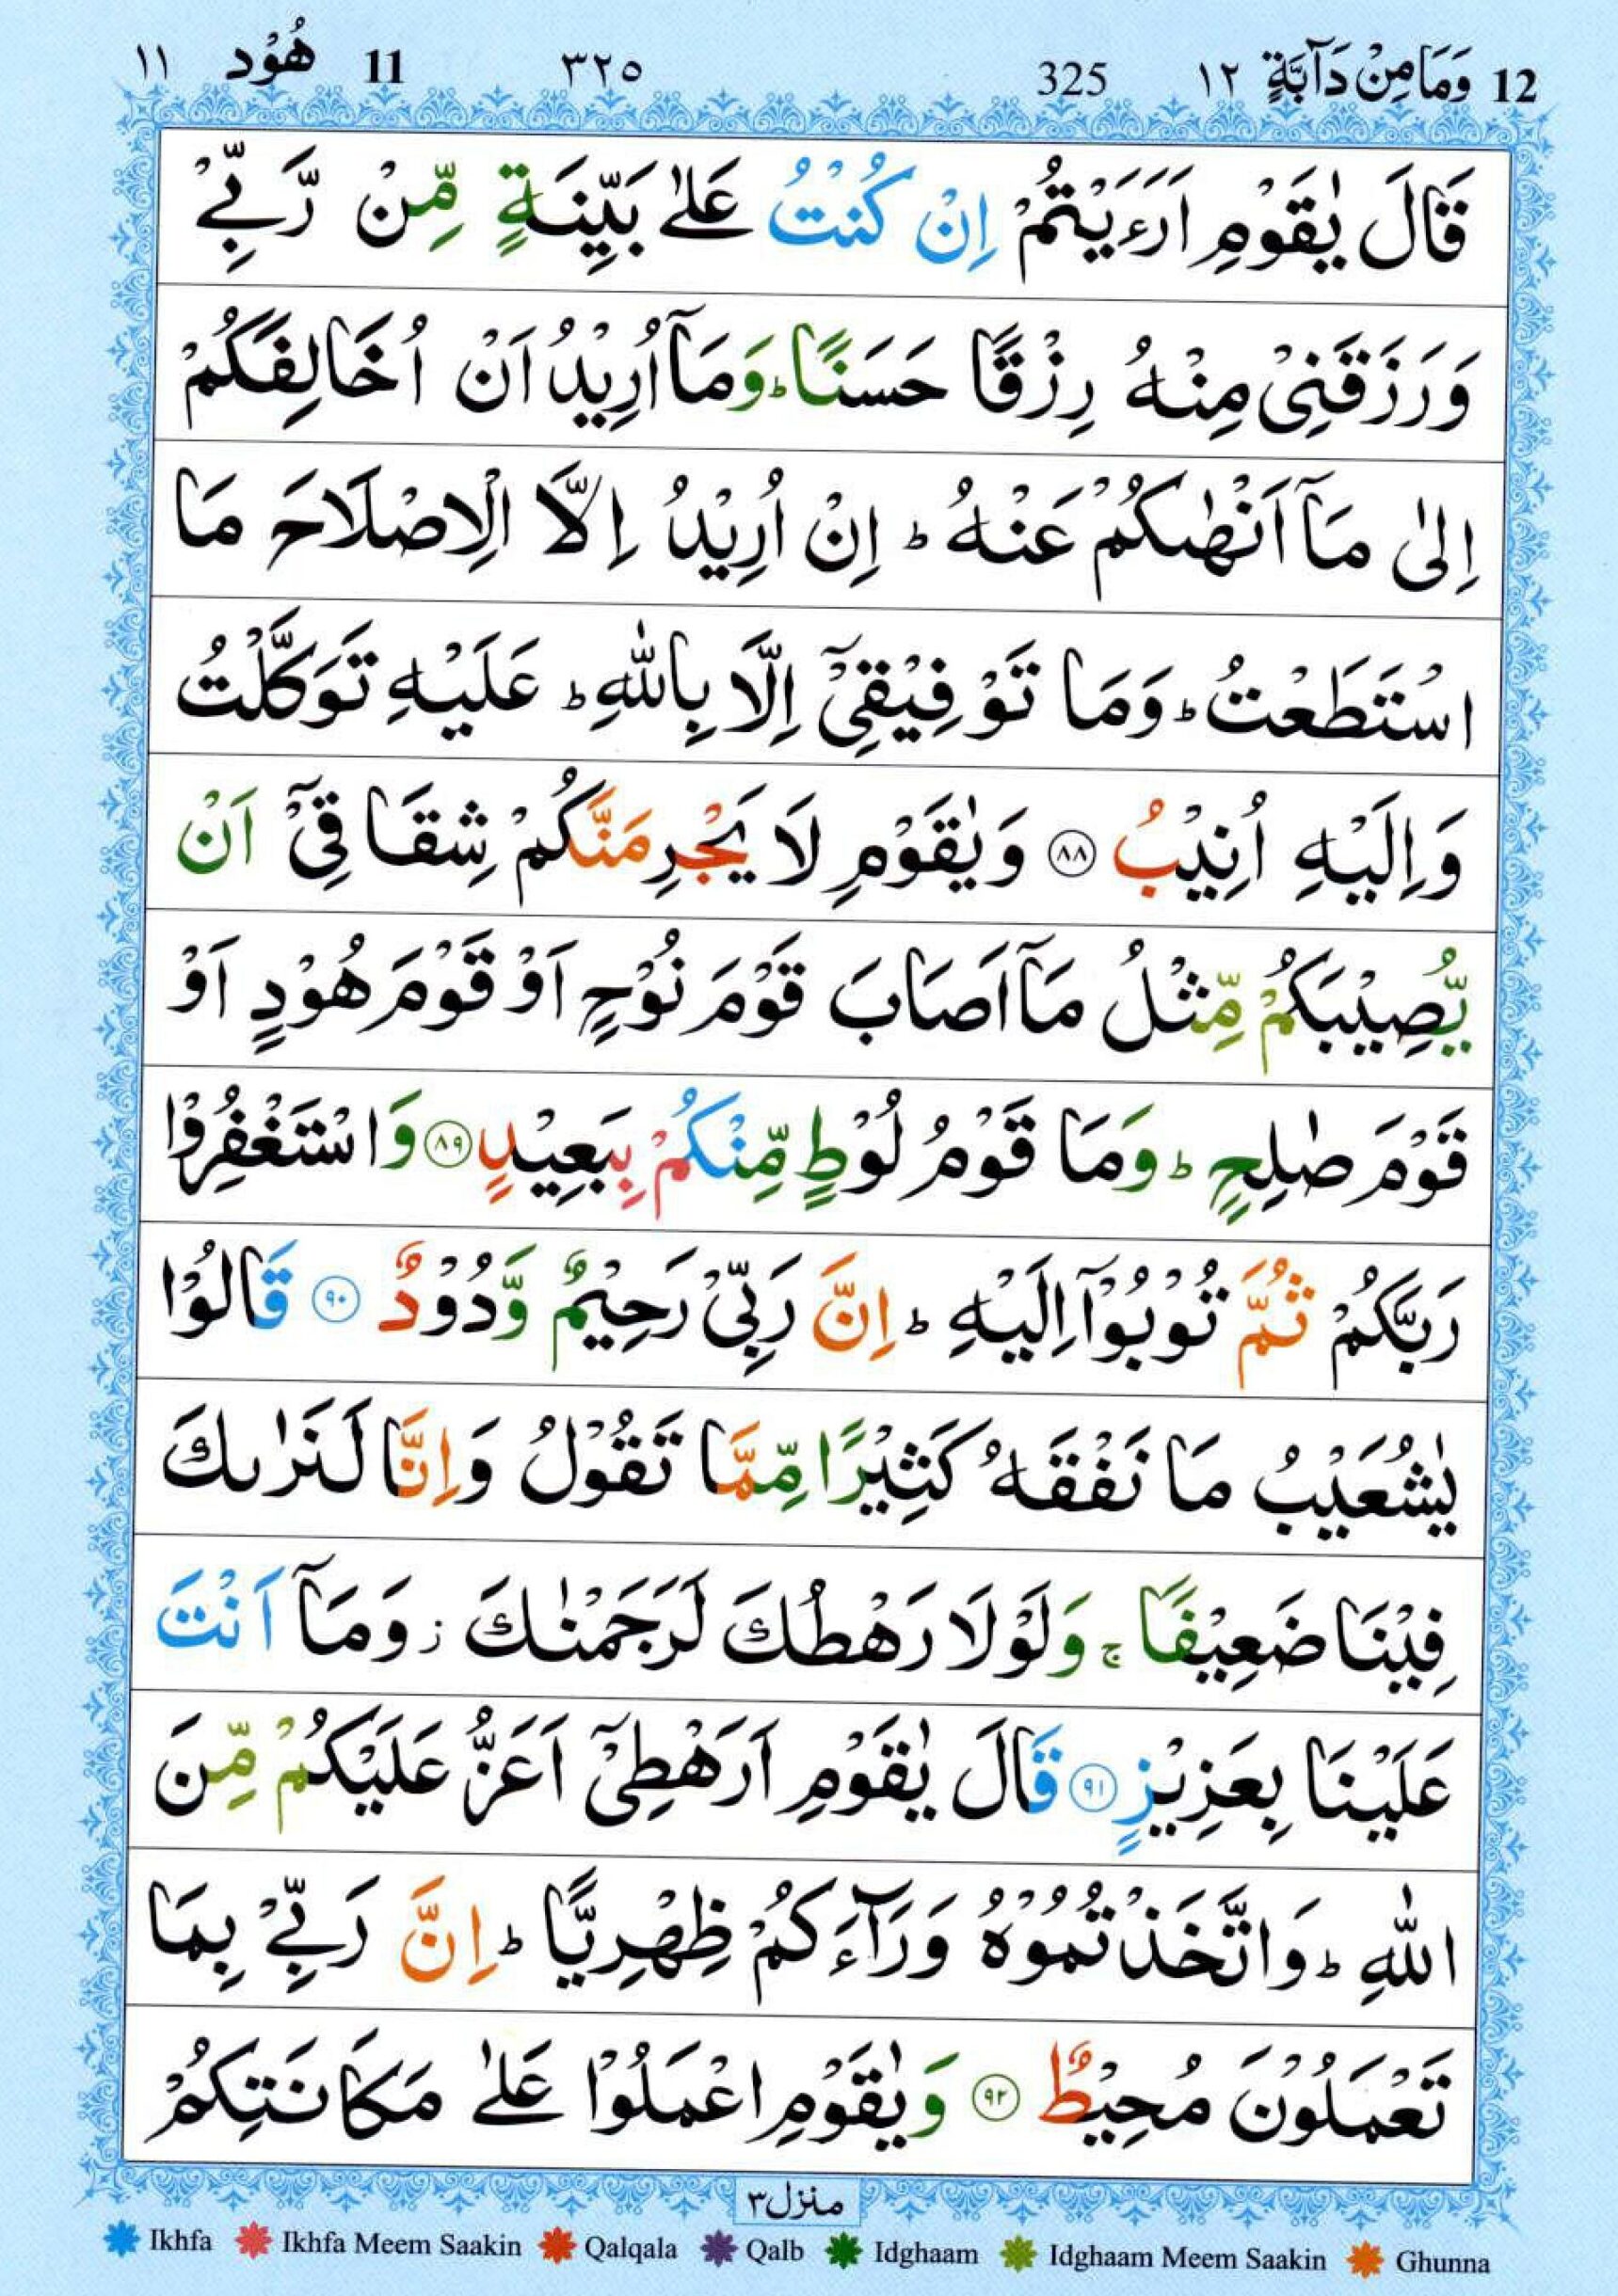 12 وَمَا مِنْ دَآبَّةٍ ١٢ 325 ٣٢٥ 11 هُوْد ١١
قَالَ يٰقَوْمِ اَرَءَيْتُمْ اِنْ كُنْتُ عَلٰى بَيِّنَةٍ مِّنْ رَّبِّيْ
وَرَزَقَنِيْ مِنْهُ رِزْقًا حَسَنًا ؕ وَمَاۤ اُرِيْدُ اَنْ اُخَالِفَكُمْ
اِلٰى مَاۤ اَنْهٰىكُمْ عَنْهُ ؕ اِنْ اُرِيْدُ اِلَّا الْاِصْلَاحَ مَا
اسْتَطَعْتُ ؕ وَمَا تَوْفِيْقِيْۤ اِلَّا بِاللّٰهِ ؕ عَلَيْهِ تَوَكَّلْتُ
وَاِلَيْهِ اُنِيْبُ ﴿٨٨﴾ وَيٰقَوْمِ لَا يَجْرِمَنَّكُمْ شِقَاقِيْۤ اَنْ
يُّصِيْبَكُمْ مِّثْلُ مَاۤ اَصَابَ قَوْمَ نُوْحٍ اَوْ قَوْمَ هُوْدٍ اَوْ
قَوْمَ صٰلِحٍ ؕ وَمَا قَوْمُ لُوْطٍ مِّنْكُمْ بِبَعِيْدٍ ﴿٨٩﴾ وَاسْتَغْفِرُوْا
رَبَّكُمْ ثُمَّ تُوْبُوْۤا اِلَيْهِ ؕ اِنَّ رَبِّيْ رَحِيْمٌ وَّدُوْدٌ ﴿٩٠﴾ قَالُوْا
يٰشُعَيْبُ مَا نَفْقَهُ كَثِيْرًا مِّمَّا تَقُوْلُ وَاِنَّا لَنَرٰىكَ
فِيْنَا ضَعِيْفًا ۚ وَلَوْلَا رَهْطُكَ لَرَجَمْنٰكَ ؗ وَمَاۤ اَنْتَ
عَلَيْنَا بِعَزِيْزٍ ﴿٩١﴾ قَالَ يٰقَوْمِ اَرَهْطِيْۤ اَعَزُّ عَلَيْكُمْ مِّنَ
اللّٰهِ ؕ وَاتَّخَذْتُمُوْهُ وَرَآءَكُمْ ظِهْرِيًّا ؕ اِنَّ رَبِّيْ بِمَا
تَعْمَلُوْنَ مُحِيْطٌ ﴿٩٢﴾ وَيٰقَوْمِ اعْمَلُوْا عَلٰى مَكَانَتِكُمْ
منزل ٣
Ikhfa Ikhfa Meem Saakin Qalqala Qalb Idghaam Idghaam Meem Saakin Ghunna